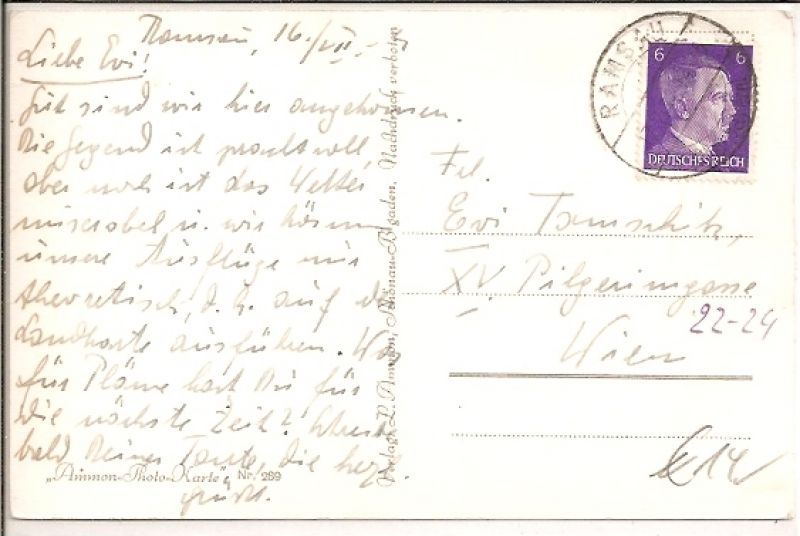 Ramsau, 16./VII.
Liebe Evi!
Gut sind wir hier angekommen.
Die Gegend ist prachtvoll,
aber noch ist das Wetter
miserabel u. wir können
unsere Ausflüge nur
theoretisch, d. h. auf der
Landkarte ausführen. Was
für Pläne hast Du für
die nächste Zeit? Schreibe
bald Deiner Tante, die herzl.
grüßt.
"Ammon-Photo-Karte" Nr. 289
Verlag: L. Ammon, Nachdruck verboten
RAMSAU
6 6
DEUTSCHES REICH
Frl.
Evi Tomschitz,
XV. Pilgerimgasse
22-24
Wien
14